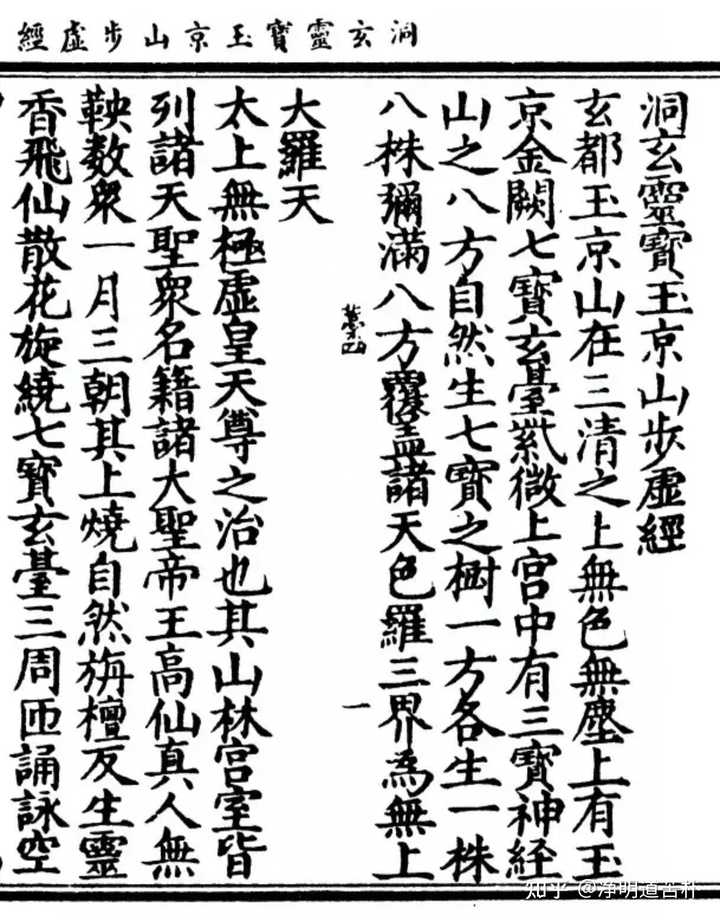 洞玄靈寶玉京山步虛經
洞玄靈寶玉京山步虛經
玄都玉京山在三清之上無色無塵上有玉
京金闕七寶玄臺紫微上宮中有三寶神経
山之八方自然生七寶之樹一方各生一株
八株彌滿八方覆盖諸天包羅三界為無上
四 一
大羅天
太上無極虛皇天尊之治也其山林宮室皆
列諸天聖眾名籍諸大聖帝王高仙真人無
鞅數眾一月三朝其上燒自然旃檀反生靈
香飛仙散花旋繞七寶玄臺三周匝誦詠空
知乎 @淨明道